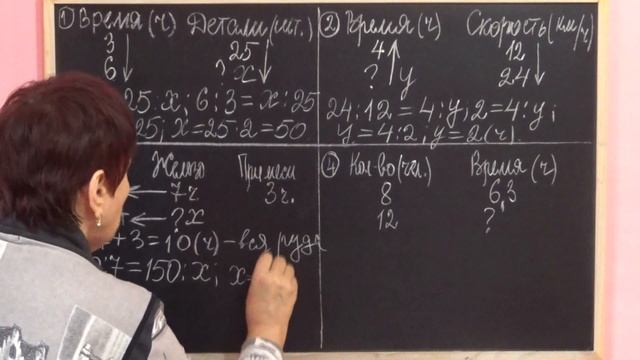 ① Время (ч) Детали (шт.)
3 25
6 ? x
25:x; 6:3 = x:25
25; x=25·2=50
② Время (ч) Скорость (км/ч)
4 12
? y 24
24:12 = 4:y; 2=4:y;
y=4:2; y=2(ч).
Железо Примеси
7ч 3ч.
? x
+3=10(ч)-вся руда
:7=150:x; x=
④ Кол-во (чел.) Время (ч)
8 6,3
12 ?